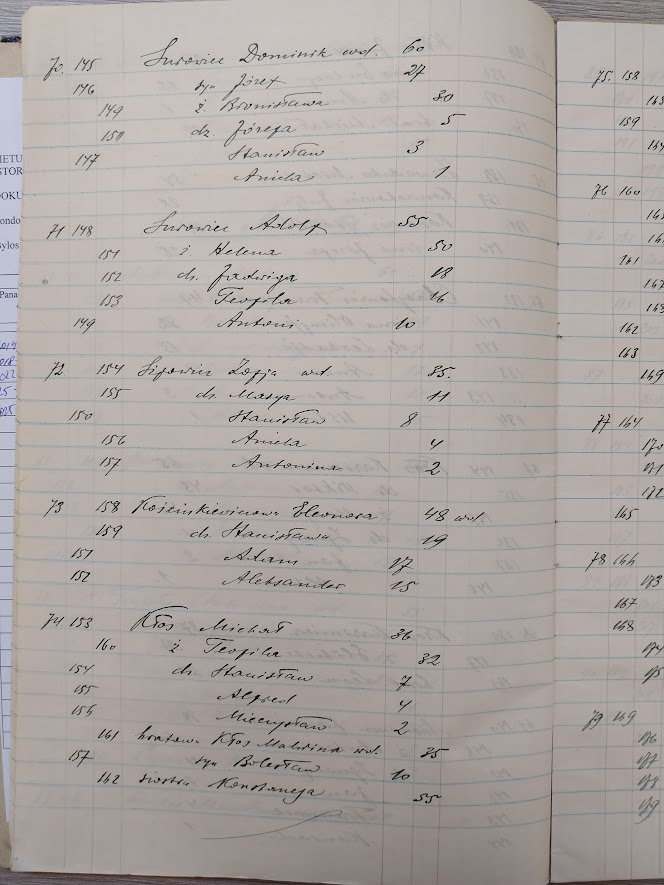 70. 145 Surowiec Dominik wd. 60
146 syn Józef 27
149 ż. Bronisława 30
150 dz. Józefa 5
147 Stanisław 3
Aniela 1
71 148 Surowiec Adolf 55
151 ż Helena 50
152 dz. Jadwiga 18
153 Teofila 16
149 Antoni 10
72 154 Zofja wd. 35.
155 dz. Marya 11
150 Stanisław 8
156 Aniela 4
157 Antonina 2
73 158 Eleonora 48 wd.
159 dz. Stanisława 19
151 Adam 17
152 Aleksander 15
74 153 Kłos Michał 36
160 ż Teofila 32
154 dz. Stanisław 7
155 Alfred 4
156 Mieczysław 2
161 bratowa Kłos Malwina wd. 35
157 syn Bolesław 10
162 siostra Konstancja 55
75. 158
159
76 160
161
162
163
169
77 164
170
171
172
165
78 166
173
167
168
174
175
79 169
176
177
178
179